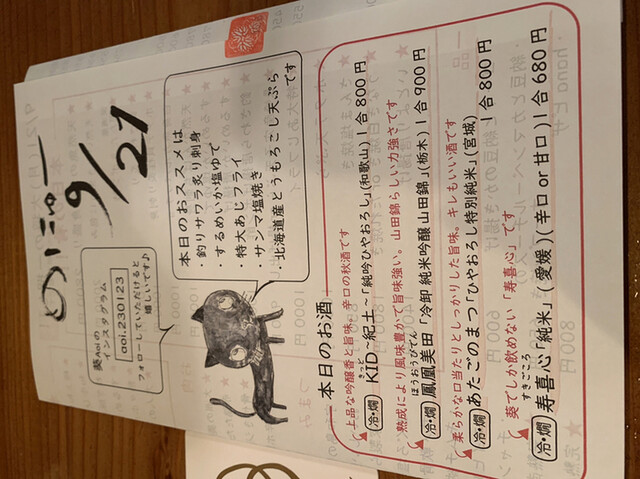 めにゅー
9/21
葵Aoiの
インスタグラム
aoi.230123
フォローしていただけると
嬉しいです♪
本日のおススメは
・釣りサワラ炙り刺身
・するめいか塩ゆで
・特大あじフライ
・サンマ塩焼き
・北海道産とうもろこし天ぷら
です
本日のお酒
上品な吟醸香と旨味。辛口の秋酒です
冷・燗 KID~紀土~「純吟ひやおろし」(和歌山)1合800円
きっど
熟成により風味豊かで旨味強い。山田錦らしい力強さです
冷・燗 鳳凰美田「冷卸 純米吟醸 山田錦」(栃木)1合900円
ほうおうびでん
柔らかな口当たりとしっかりした旨味。キレもいい酒です
冷・燗 あたごのまつ「ひやおろし特別純米」(宮城)
1合800円
葵でしか飲めない「寿喜心」です
冷・燗 寿喜心「純米」(愛媛)(辛口or甘口)1合680円
すきごころ